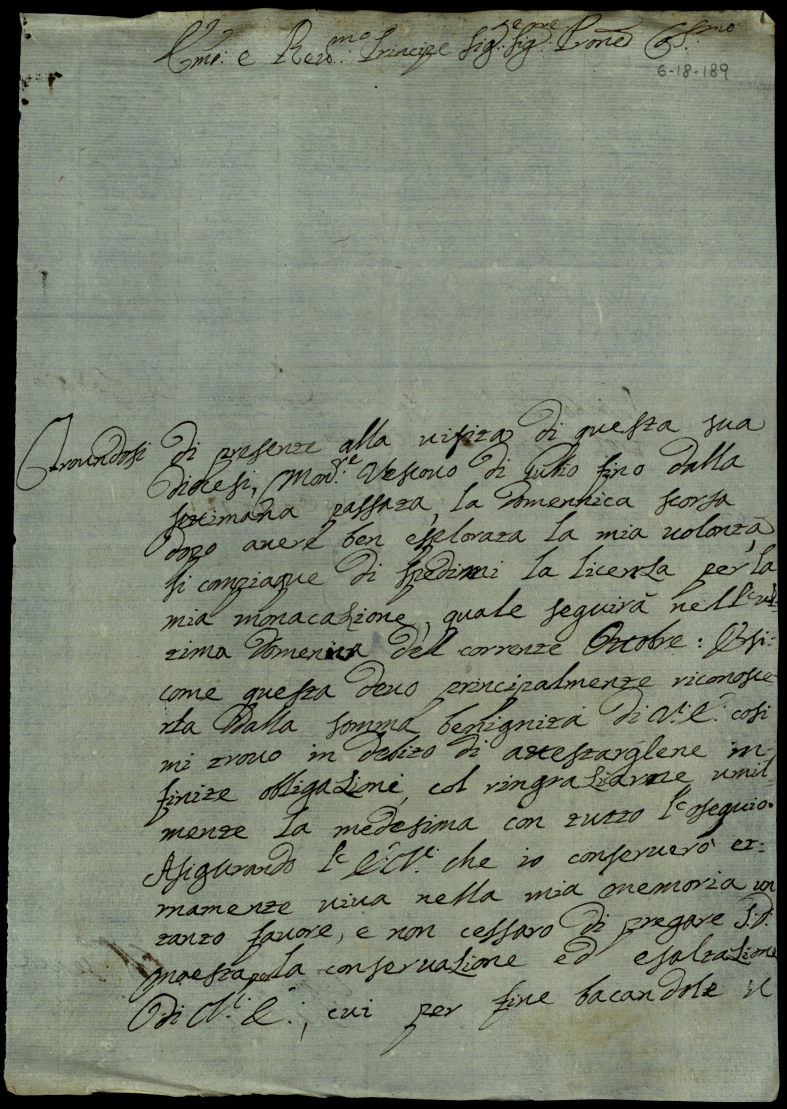 Emo: e Revmo: Principe Sig:re Sig:re Prone Colmo
6-18-189
Trovandosi di presente alla visita di questa sua
Diocesi, Mons:re Vescovo di fino dalla
settimana passata, la Domennica scorsa
dopo avere ben esplorata la mia volontà,
si compiaque di spedirmi la licenza per la
mia monacazione, quale seguirà nell'ul-
tima Domenica del corrente Ottobre: E si-
come questa devo principalmente riconosce-
rla dalla somma benignità di V: E: cosi
mi trovo in debito di attestarglene in-
finite obligazioni, col ringraziarne umil
mente la medesima con tutto l'osequio.
Asigurando l'E: V: che io conserverò et-
rnamente viva nella mia memoria un
tanto favore, e non cessarò di pregare S. D.
maestà per la conservazione ed esaltazione
di V: E:, cui per fine bacandole il